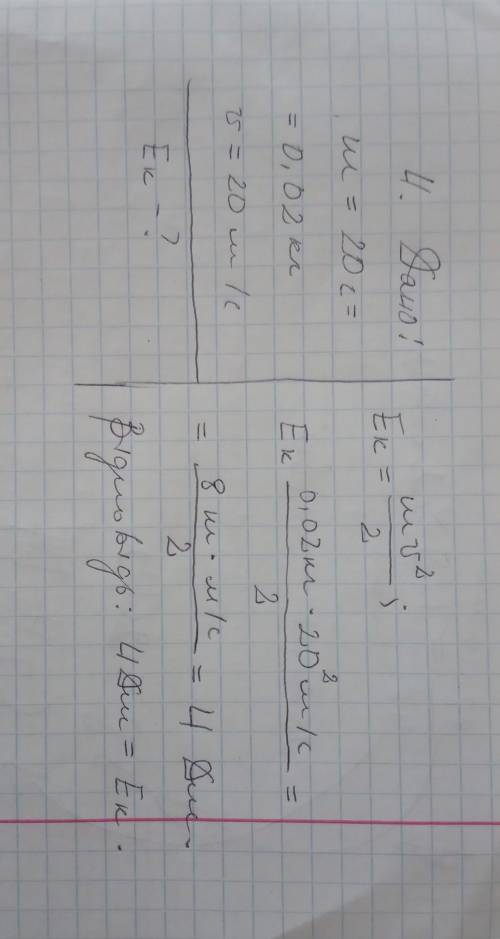 4. Дано:
m = 20 г =
= 0,02 кг
v = 20 м/с
Eк - ?
Eк = mv²/2 ;
Eк 0,02 кг · 20² м/с / 2 =
= 8 кг · м/с / 2 = 4 Дж.
Відповідь: 4 Дж = Eк.